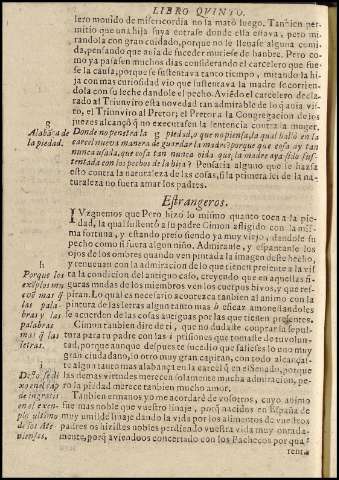 LIBRO QVINTO.
lero movido de misericordia no la mató luego. Tanbien per-
mitio que una hija suya entrase donde ella estava, pero mi-
randola con gran cuidado, porque no le llevase alguna comi-
da, pensando que avia de suceder muriese de hanbre. Pero co-
mo ya pasasen muchos dias considerando el carcelero que fue-
se la causa, porque se sustentava tanto tiempo, mirando la hi-
ja con mas curiosidad vio que sustentava la madre socorrien-
dola con su leche dandole el pecho. Avisado el carcelero decla-
rado al Triunviro esta novedad tan admirable de lo q̃ avia vis-
to, el Triunviro al Pretor; el Pretor a la Congregacion de los
juezes alcançó q̃ no executasen la sentencia contra la muger.
g
Alabãça de
la piedad.
Donde no penetra la g piedad, o que no piensa, la qual halló en la
carcel nueva manera de guardar la madre? porque que cosa ay tan
nunca usada, que cosa tan nunca oida que la madre aya sido sus-
tentada con los pechos de la hija? Pensaria alguno que le haria
esto contra la naturaleza de las cosas, si la primera lei de la na-
turaleza no fuera amar los padres.
Estrangeros.
IVzguemos que Pero hizo lo mismo quanto toca a la pie-
dad, la qual sustentó a su padre Cimon afligido con la mis-
ma fortuna, y estando preso siendo ya muy viejo, dandole su
pecho como si fuera algun niño. Admiranse, y espantanse los
ojos de los onbres quando ven pintada la imagen deste hecho,
y renuevan con la admiracion de lo que tienen presente a la vis-
h
Porque los
exẽplos mu
evẽ mas q̃
las pala
bras y las
palabras
mas q̃ las
letras.
ta la condicion del antiguo caso, creyendo que en aquellas fi-
guras mudas de los miembros ven los cuerpos bivos, y que res-
piran. Lo qual es necesario acontezca tanbien al animo con la
pintura de las letras algun tanto mas h eficaz amonestandoles
se acuerden de las cosas antiguas por las que tienen presentes.
Cimon tanbien dire de ti, que no dudaste comprar la sepul-
tura para tu padre con las prisiones que tomaste de tu volun-
tad, porque aunque despues te sucedio que salieses lo uno muy
gran ciudadano, lo otro muy gran capitan, con todo alcanças-
te algun tanto mas alabança en la carcel q̃ en el Senado, porque
las demas virtudes merecen solamente mucha admiracion, pe-
ro la piedad merece tanbien mucho amor.
Tanbien ermanos yo me acordaré de vosotros, cuyo animo
fue mas noble que vuestro linaje, porq̃ nacidos en España de
muy umilde linaje dando la vida por los alimentos de vuestros
padres os hizistes nobles perdiendo vuestra vida muy onrada-
mente, porq̃ aviendoos concertado con los Pachecos por que
rent-